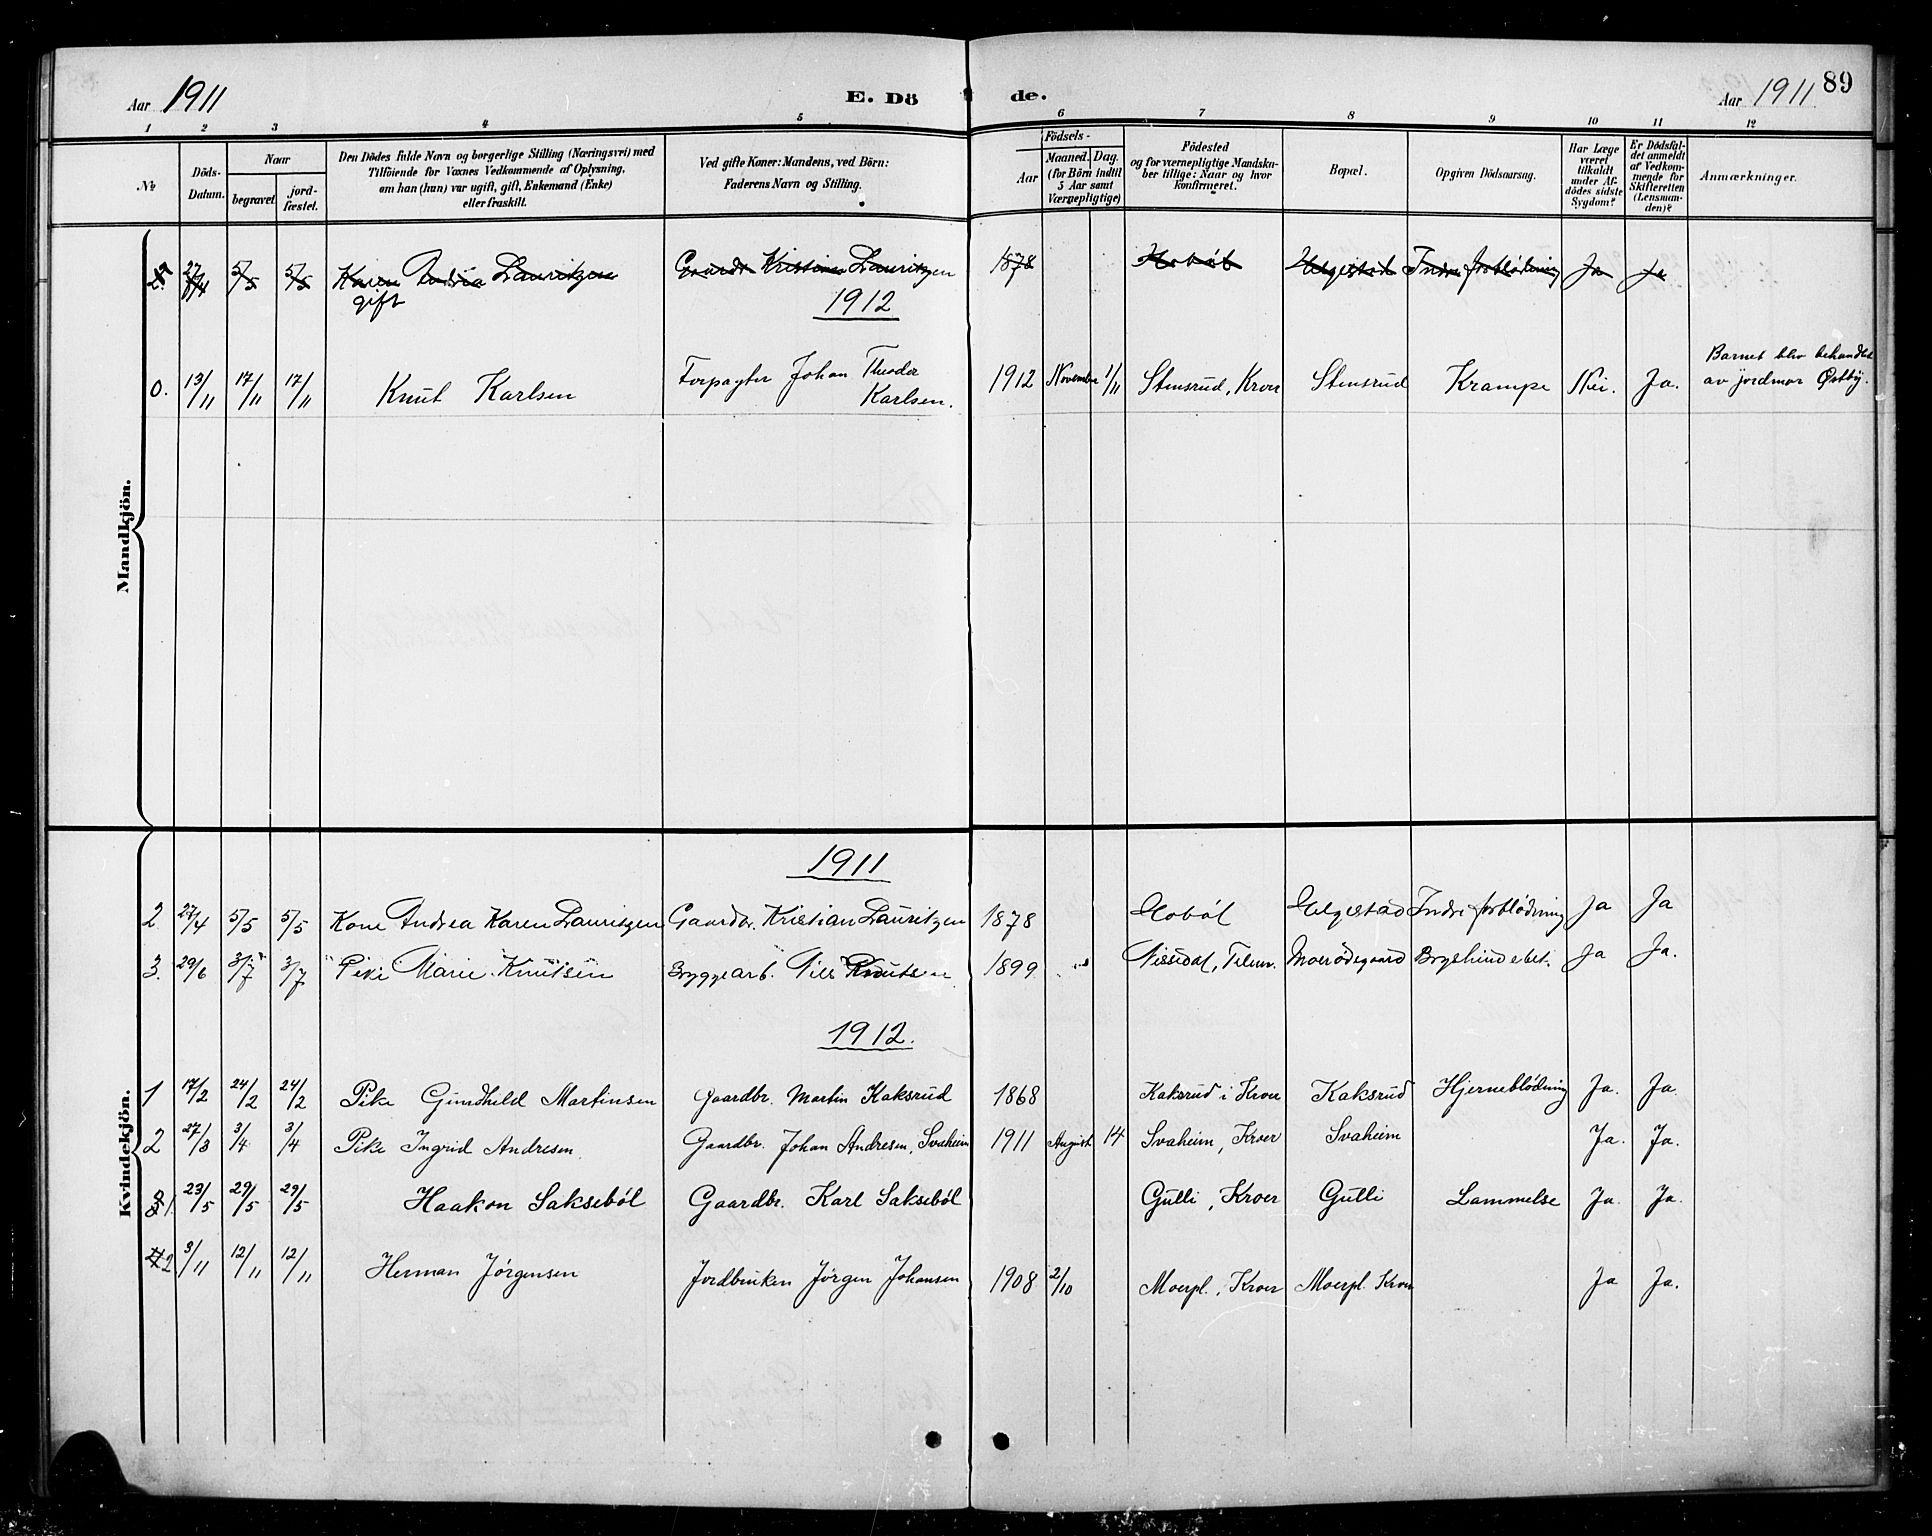 Aar 1911
E. Dö de.
Aar 1911
89
1 2 3 4 5 6 7 8 9 10 11 12
№
Döds-
Datum.
Naar
begravet.
jord-
fæstet.
Den Dödes fulde Navn og borgerlige Stilling (Næringsvei) med
Tilföiende for Voxnes Vedkommende af Oplysning,
om han (hun) var ugift, gift, Enkemand (Enke)
eller fraskilt.
Ved gifte Koner: Mandens, ved Börn:
Faderens Navn og Stilling.
Födsels-
Aar
Maaned. Dag.
(for Börn indtil
5 Aar samt
Værnepligtige)
Födested
og for værnepligtige Mandska-
ber tillige: Naar og hvor
konfirmeret.
Bopæl.
Opgiven Dödsaarsag.
Har Læge
været
tilkaldt
under Af-
dödes sidste
Sygdom?
Er Dödsfal-
det anmeldt
af Vedkom-
mende for
Skifteretten
(Lensman-
den)?
Anmærkninger.
Mandkjön.
27/4 5/5 5/5 Karen Andrea Lauritzen Gaardbr. Kristian Lauritzen 1878 Hobøl Helgestad Indre forblödning Ja Ja
gift
1912
0. 13/11 17/11 17/11 Knut Karlsen Forpagter Johan Theodor Karlsen. 1912 November 1/11 Stensrud, Kroer Stensrud Krampe Nei. Ja. Barnet blev behandlet
av jordmor Østby.
Kvindekjön.
1911
2 27/4 5/5 5/5 Kone Andrea Karen Lauritzen Gaardbr. Kristian Lauritzen 1878 Hobøl Helgestad Indre forblödning Ja Ja
3. 29/6 3/7 3/7 Pike Marie Knutsen Bryggearb. Nils Knutsen 1899 Nissedal, Telem. Moerødegaard Ja Ja.
1912.
1 17/2 24/2 24/2 Pike Gundhild Martinsen Gaardbr. Martin Kaksrud 1868 Kaksrud i Kroer Kaksrud Hjerneblödning Ja. Ja.
2 27/3 3/4 3/4 Pike Ingrid Andresen. Gaardbr. Johan Andresen, Svaheim 1911 August 14 Svaheim, Kroer Svaheim Ja. Ja.
1. 23/5 29/5 29/5 Haakon Saksebøl Gaardbr. Karl Saksebøl Gutli, Kroer Gutli Lammelse Ja. Ja.
2 3/11 12/11 12/11 Herman Jørgensen Jordbruker Jørgen Johansen 1908 2/10 Moerpl., Kroer Moerpl. Kroer Ja Ja.